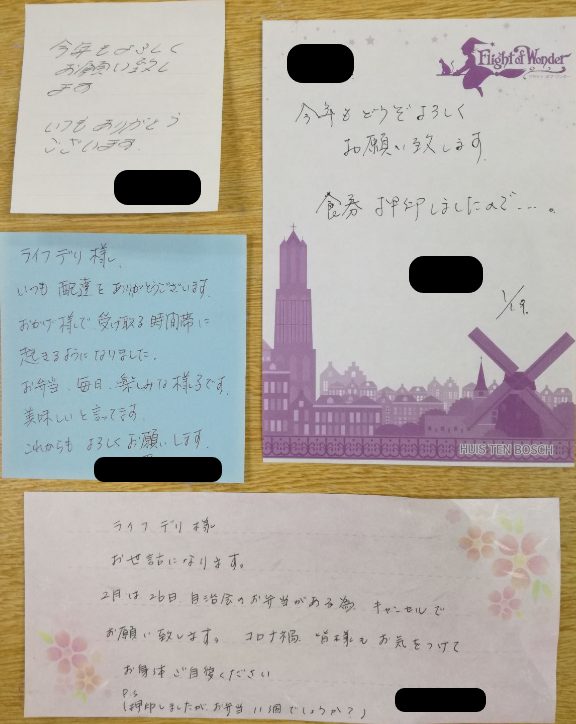 今年もよろしく
お願い致し
ます
いつもありがとう
ございます.
Flight of Wonder
今年もどうぞよろしく
お願い致します.
食券 押印しましたので…。
1/19.
HUIS TEN BOSCH
ライフデリ様
いつも配達をありがとうございます.
おかげ様で受け取る時間帯に
起きるようになりました.
お弁当、毎日、楽しみな様子です.
美味しいと言ってます.
これからもよろしくお願いします.
ライフデリ様
お世話になります。
2月は26日自治会のお弁当がある為 キャンセルで
お願い致します。 コロナ禍 皆様もお気をつけて
お身体ご自愛ください
P.S
(押印しましたがお弁当11個でしょうか?)